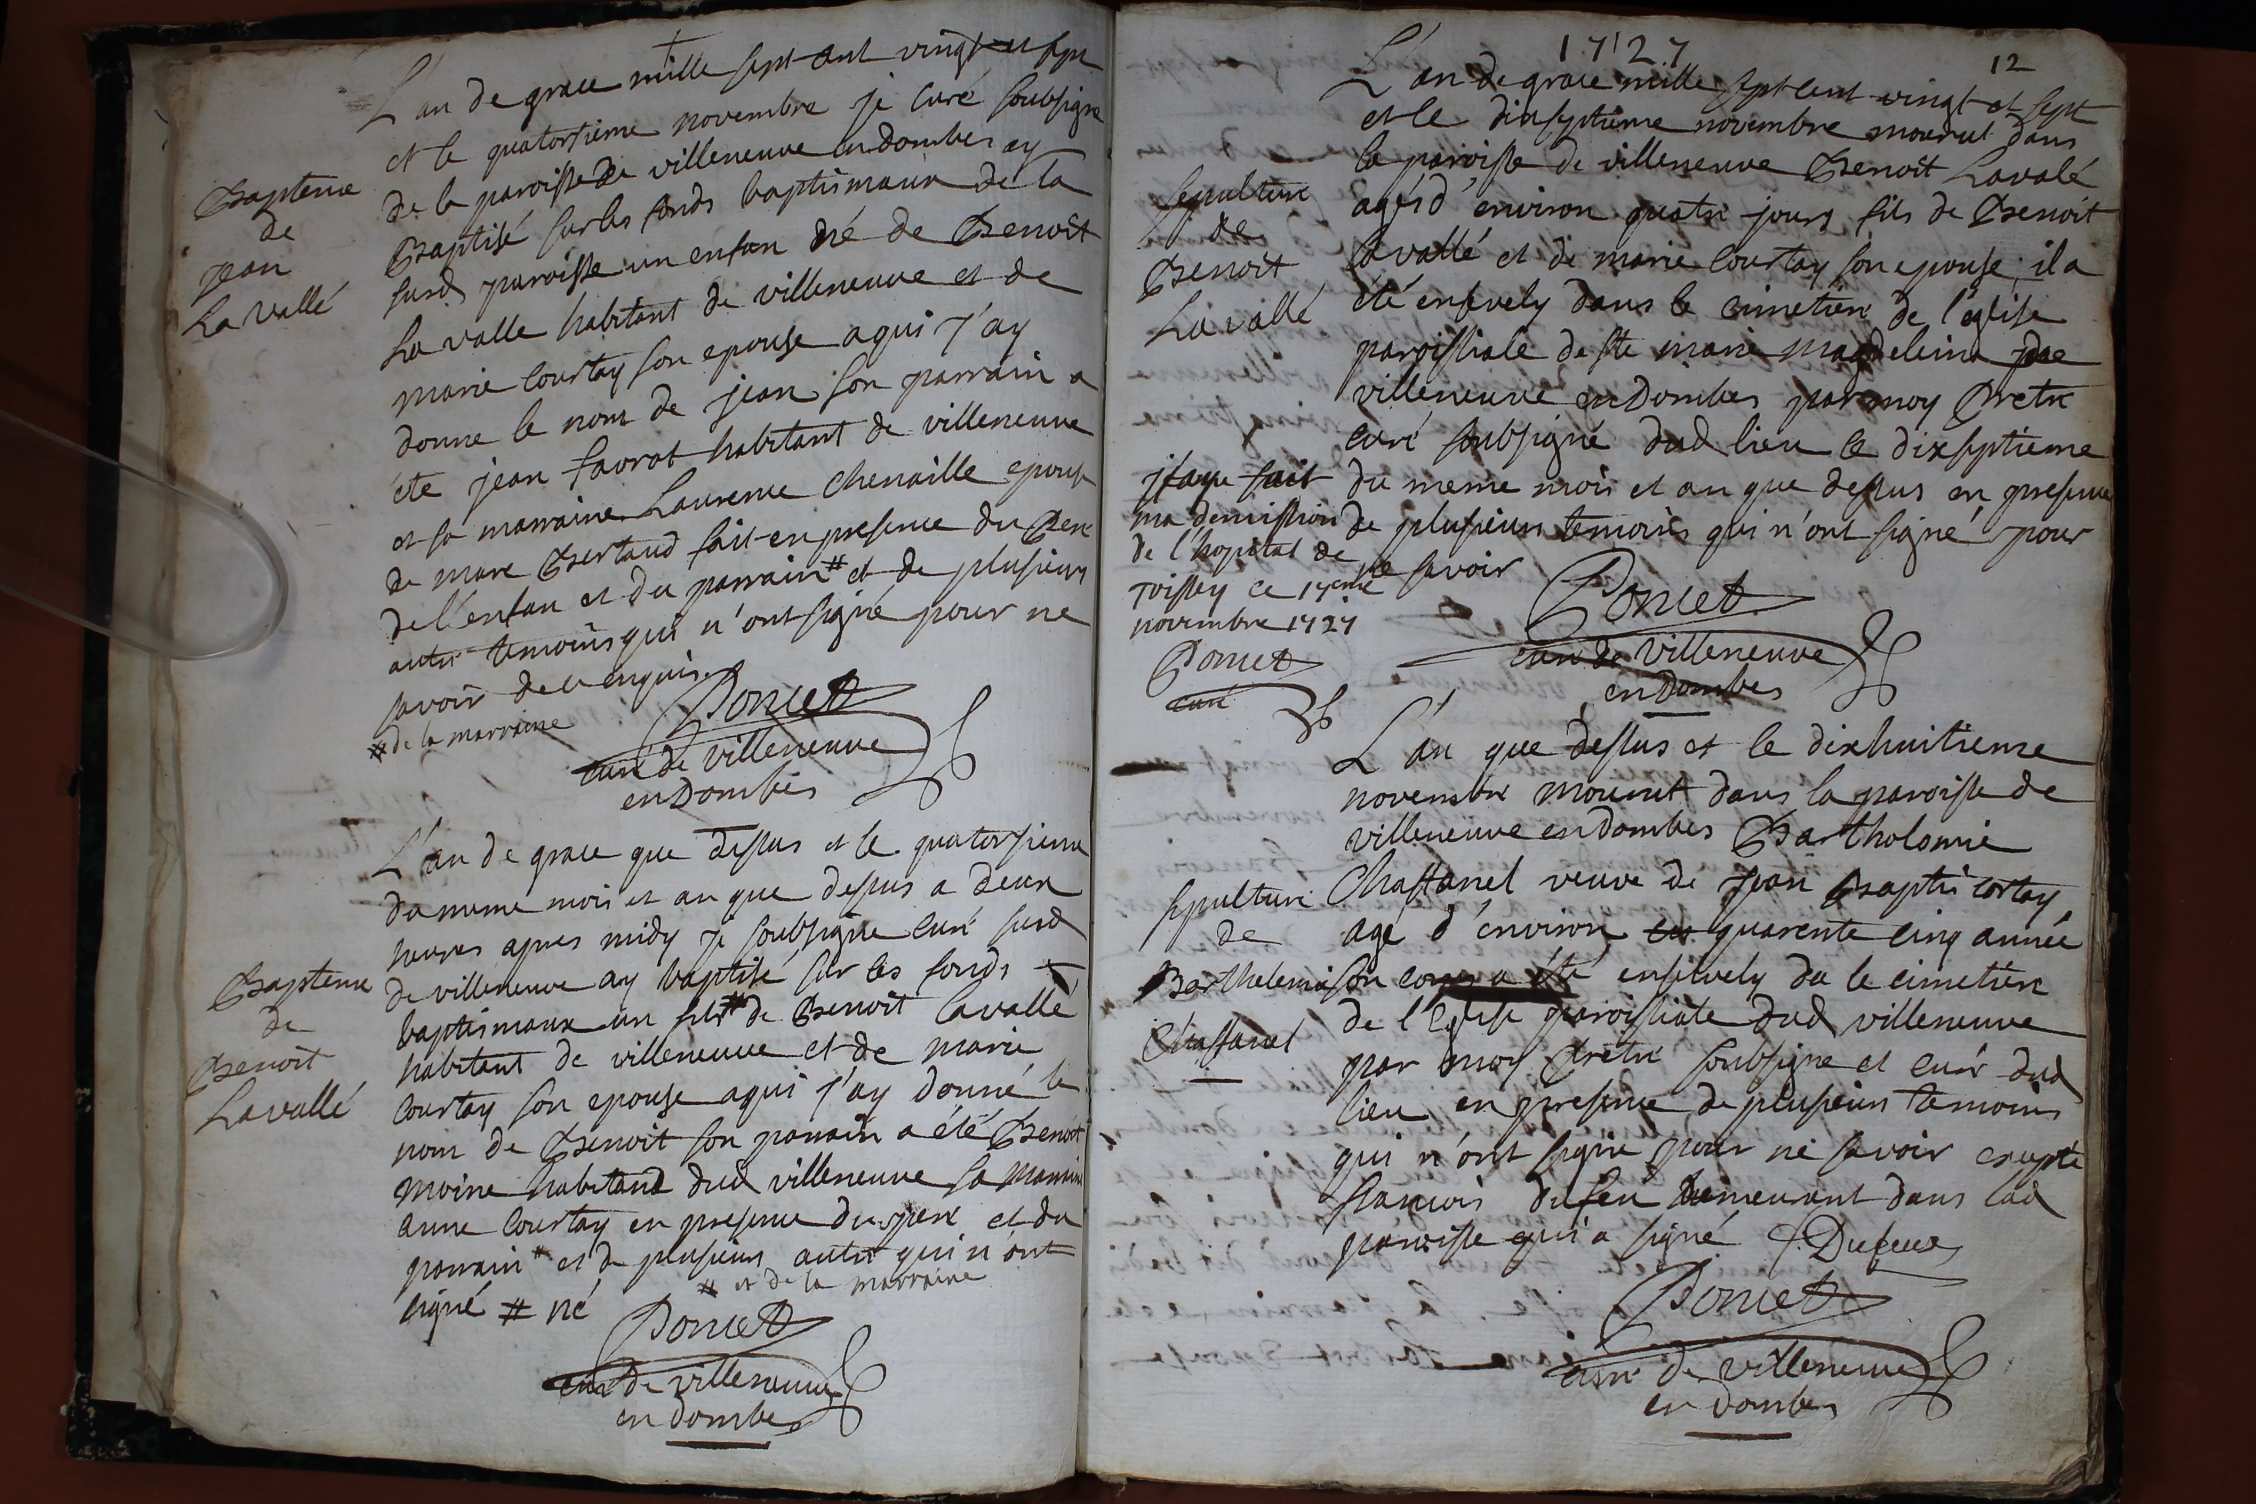 L'an de grace mille sept cent vingt et sept
et le quatorsieme novembre je curé soubsigné
de la paroisse de villeneuve en dombes ay
Baptisé sur les fonds baptismaux de la
susd paroisse un enfan né de Benoit
La valle habitant de villeneuve et de
marie Courtay son epouse a qui j'ay
donne le nom de jean son parrain a
été jean favrot habitant de villeneuve
et sa marraine Laurence chenaille epouse
de marc Bertaud fait en presence du Pere
de l'enfan et du parrain # et de plusieurs
autre temoins qui n'ont signé pour ne
savoir de ce enquis.
# de la marraine
Poncet
curé de villeneuve
en Dombes
Bapteme
de
jean
La vallé
L'an de grace que dessus et le quatorsieme
du meme mois et an que dessus a deux
heures apres midy je soubsigne curé susd
de villeneuve ay baptisé sur les fonds
baptismaux un fils # de Benoit lavallé
habitant de villeneuve et de marie
Courtay son epouse a qui j'ay donné le
nom de Benoit son parrain a été Benoit
moine habitand dud villeneuve sa marraine
anne Courtay en presence du pere et du
parrain # et de plusieurs autre qui n'ont
signé # né
# et de la marraine
Poncet
curé de villeneuve
en dombes
Bapteme
de
Benoit
Lavallé
1727
12
L'an de grace mille sept cent vingt et sept
et le dixseptieme novembre mourut dans
la paroisse de villeneuve Benoit Lavalé
agés d'environ quatre jours fils de Benoit
lavallé et de marie Courtay son epouse il a
été ensevely dans le cimetiere de l'église
paroissiale de ste marie magdeleine de
villeneuve en Dombes par moy Pretre
curé soubsigné dud lieu le dixseptieme
du meme mois et an que dessus en presence
de plusieurs temoins qui n'ont signé pour
ne savoir
Poncet
curé de villeneuve
en Dombes
Sepulture
de
Benoit
Lavallé
j'ay fait
ma demission
de l'hopital de
Toissey ce 17eme
novembre 1727
Poncet
curé
L'an que dessus et le dixhuitieme
novembre mourut dans la paroisse de
villeneuve en dombes Bartholomie
Chaffanel veuve de jean Baptis cortay
agé d'environ quarente cinq année
son corps a été ensevely da le cimetiere
de l'Eglise paroissiale dud villeneuve
par moy Pretre soubsigne et curé dud
lieu en presence de plusieurs temoins
qui n'ont signé pour ne savoir excepté
francois dufeu demeurant dans lad
paroisse qui a signé f. Dufeux
Poncet
curé de villeneuve
en dombes
sepulture
de
Barthelemie
Chaffanel